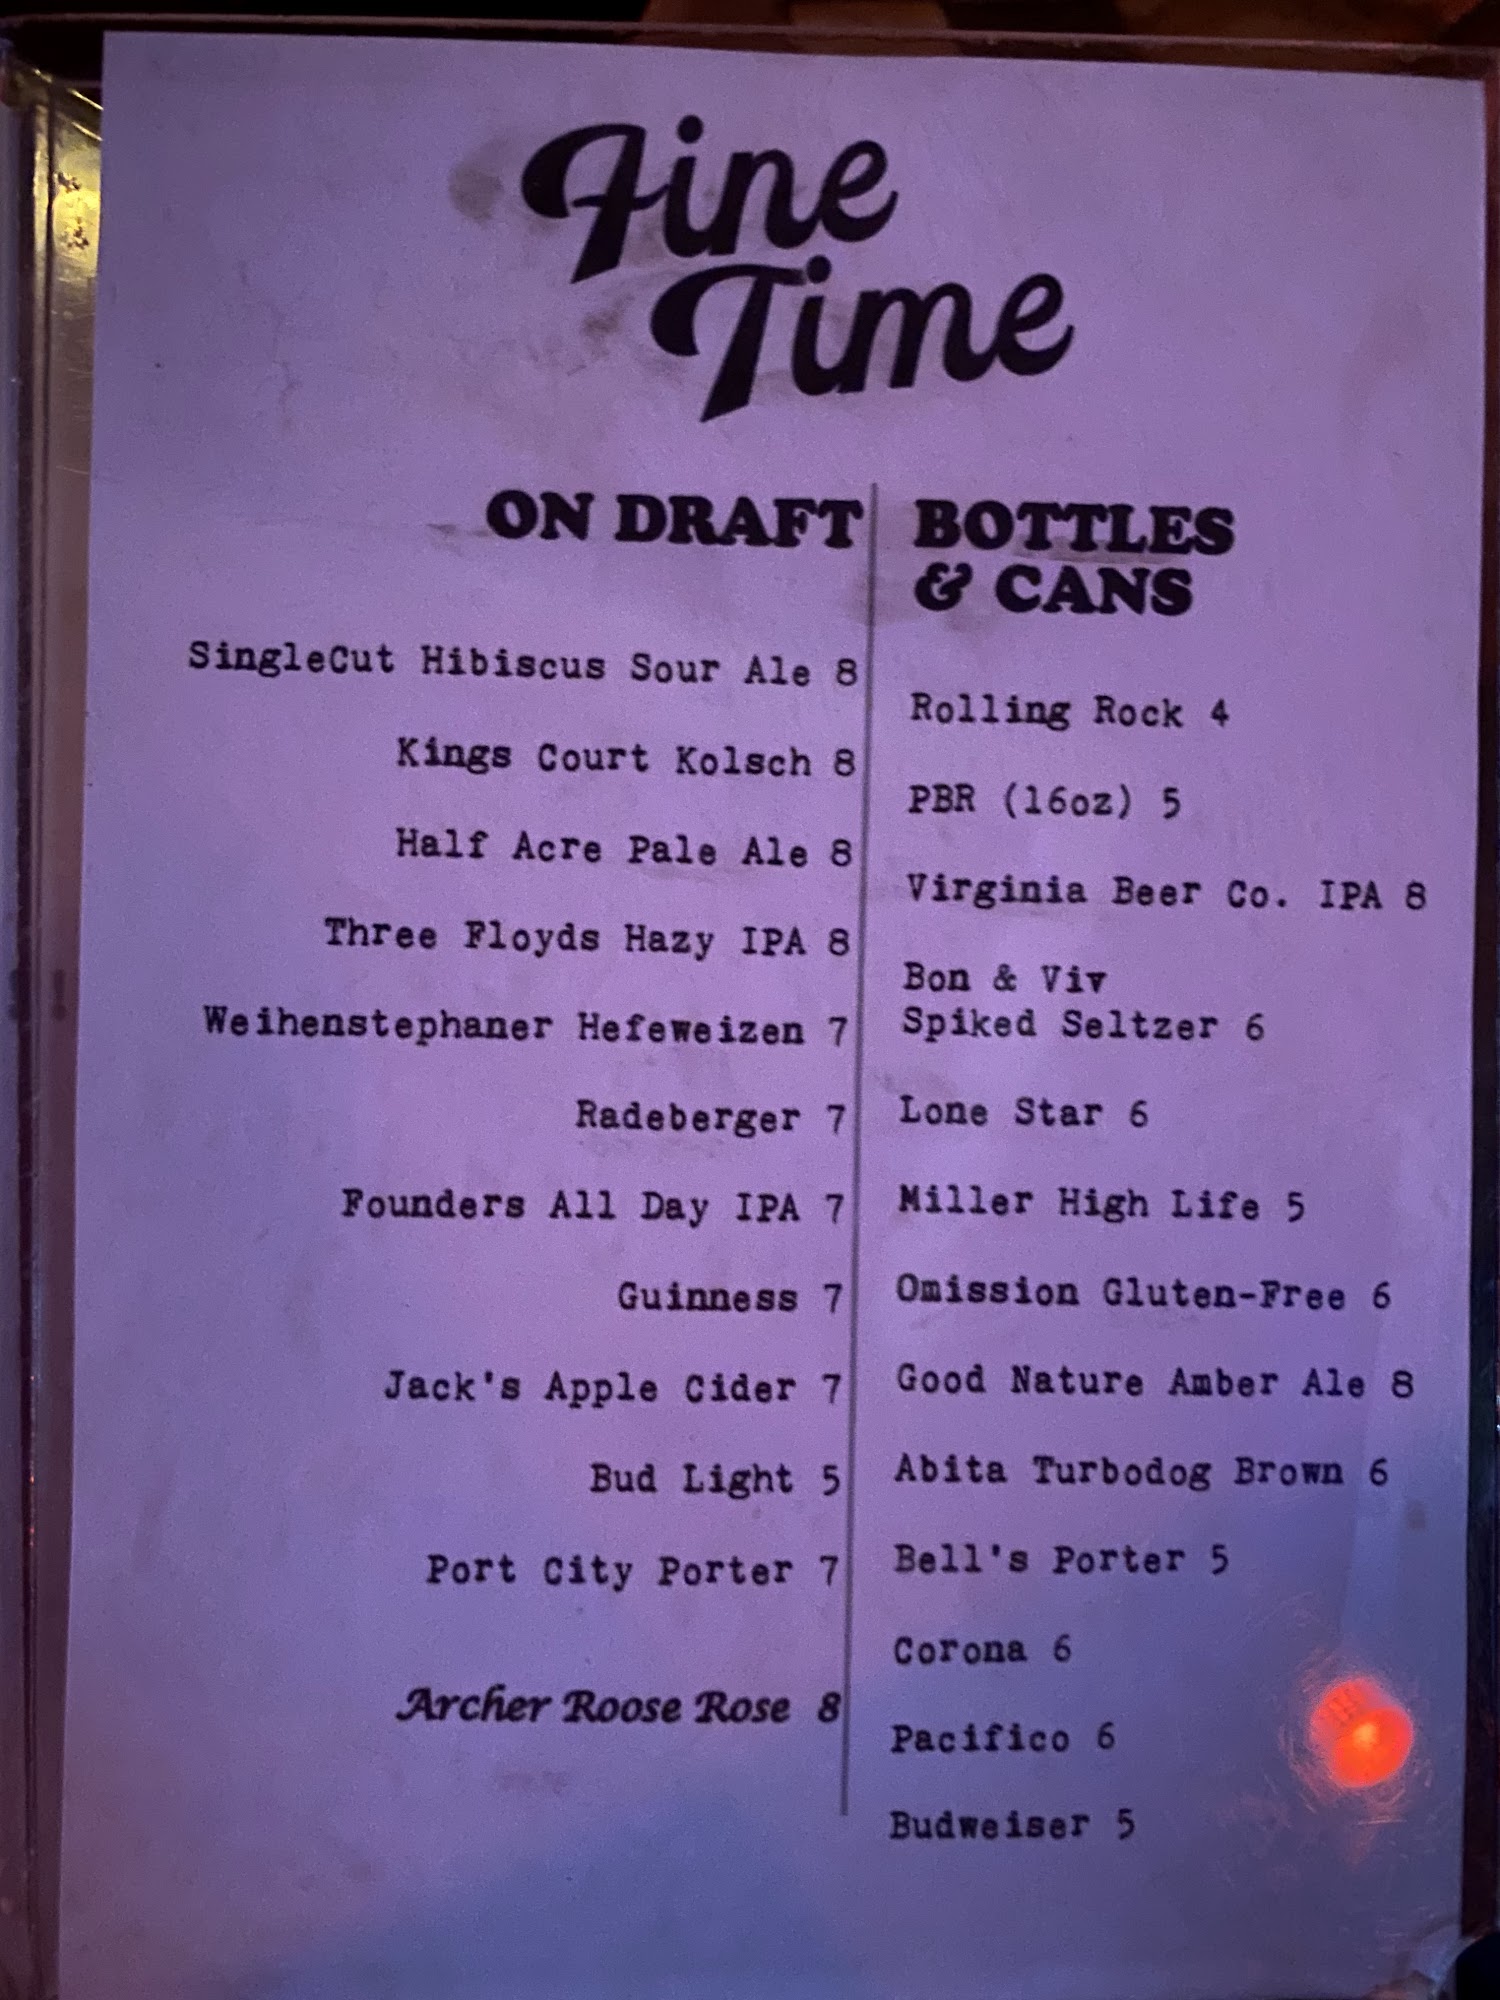 Fine
Time
ON DRAFT
SingleCut Hibiscus Sour Ale 8
Kings Court Kolsch 8
Half Acre Pale Ale 8
Three Floyds Hazy IPA 8
Weihenstephaner Hefeweizen 7
Radeberger 7
Founders All Day IPA 7
Guinness 7
Jack's Apple Cider 7
Bud Light 5
Port City Porter 7
Archer Roose Rose 8
BOTTLES
& CANS
Rolling Rock 4
PBR (16oz) 5
Virginia Beer Co. IPA 8
Bon & Viv
Spiked Seltzer 6
Lone Star 6
Miller High Life 5
Omission Gluten-Free 6
Good Nature Amber Ale 8
Abita Turbodog Brown 6
Bell's Porter 5
Corona 6
Pacifico 6
Budweiser 5